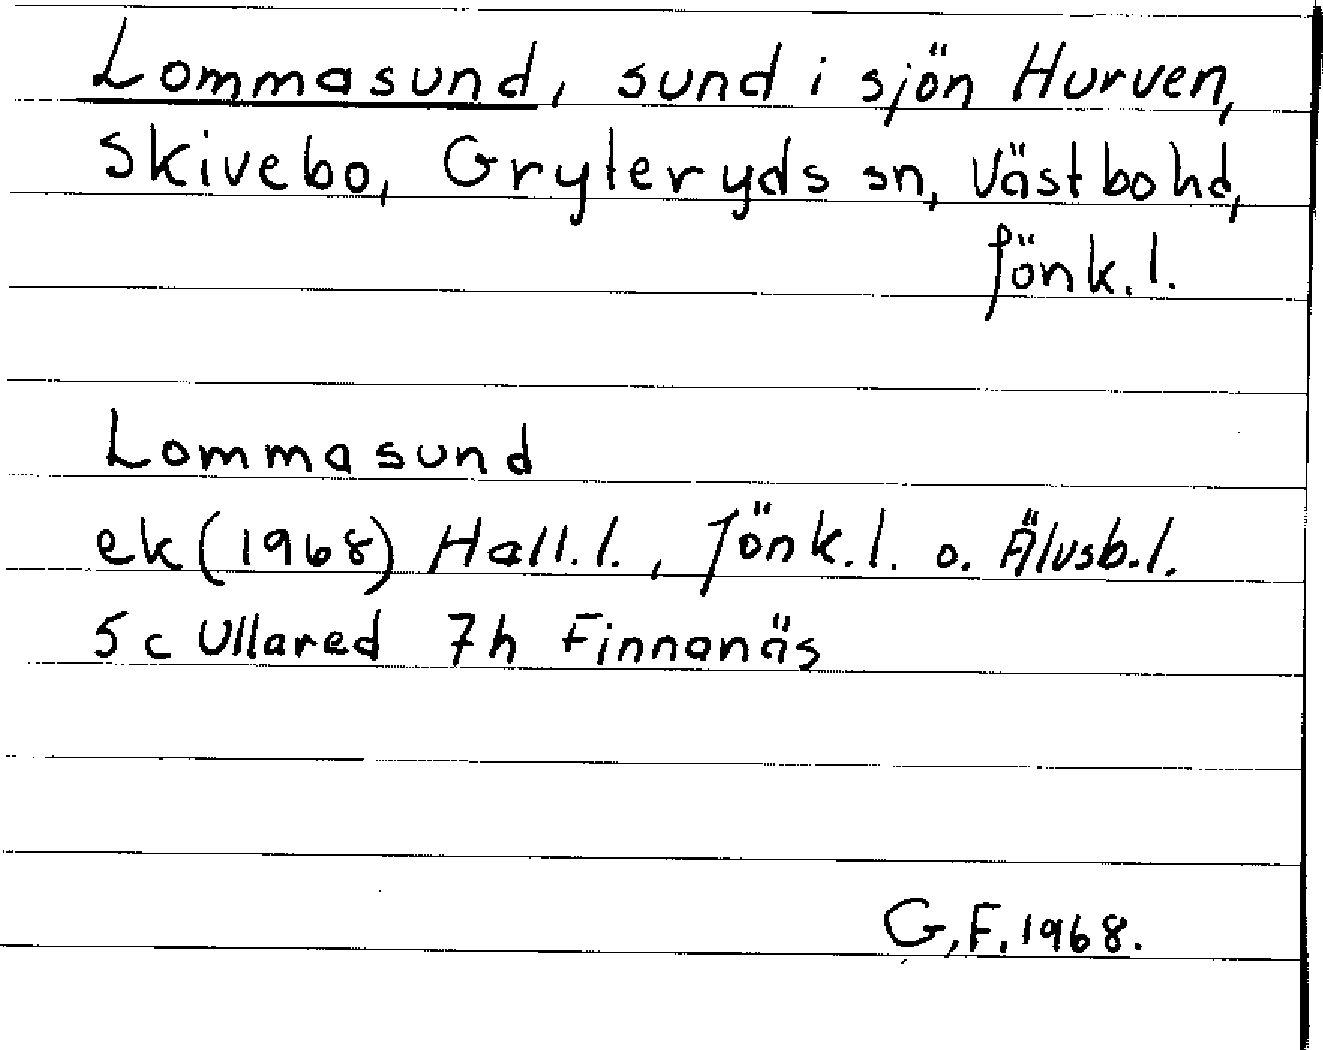 Lommasund, sund i sjön Hurven,
Skivebo, Gryteryds sn, Västbo hd,
Jönk. l.
Lommasund
ek (1968) Hall. l., Jönk. l. o. Älvsb. l.
5 c Ullared 7h Finnanäs
G.F. 1968.